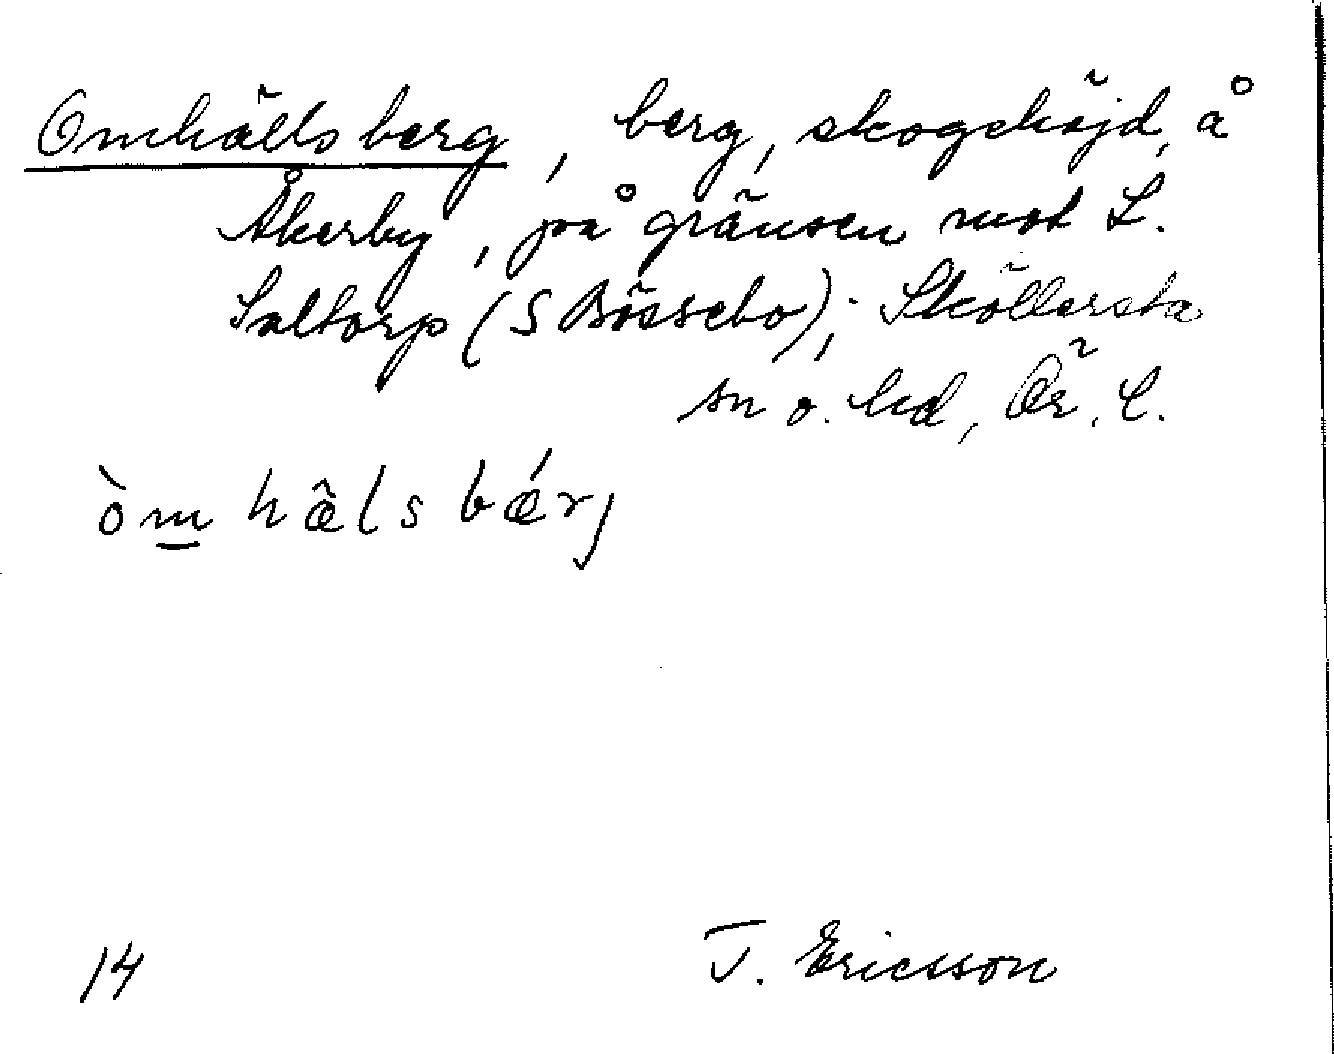 Omhälls berg, berg, skogshöjd, å
Åkerby, på gränsen mot L.
Saltorp (S Bössebo); Sköllersta
sn o. hd, Ör. l.
òm hæ̂ls bǽrj
14
T. Ericsson